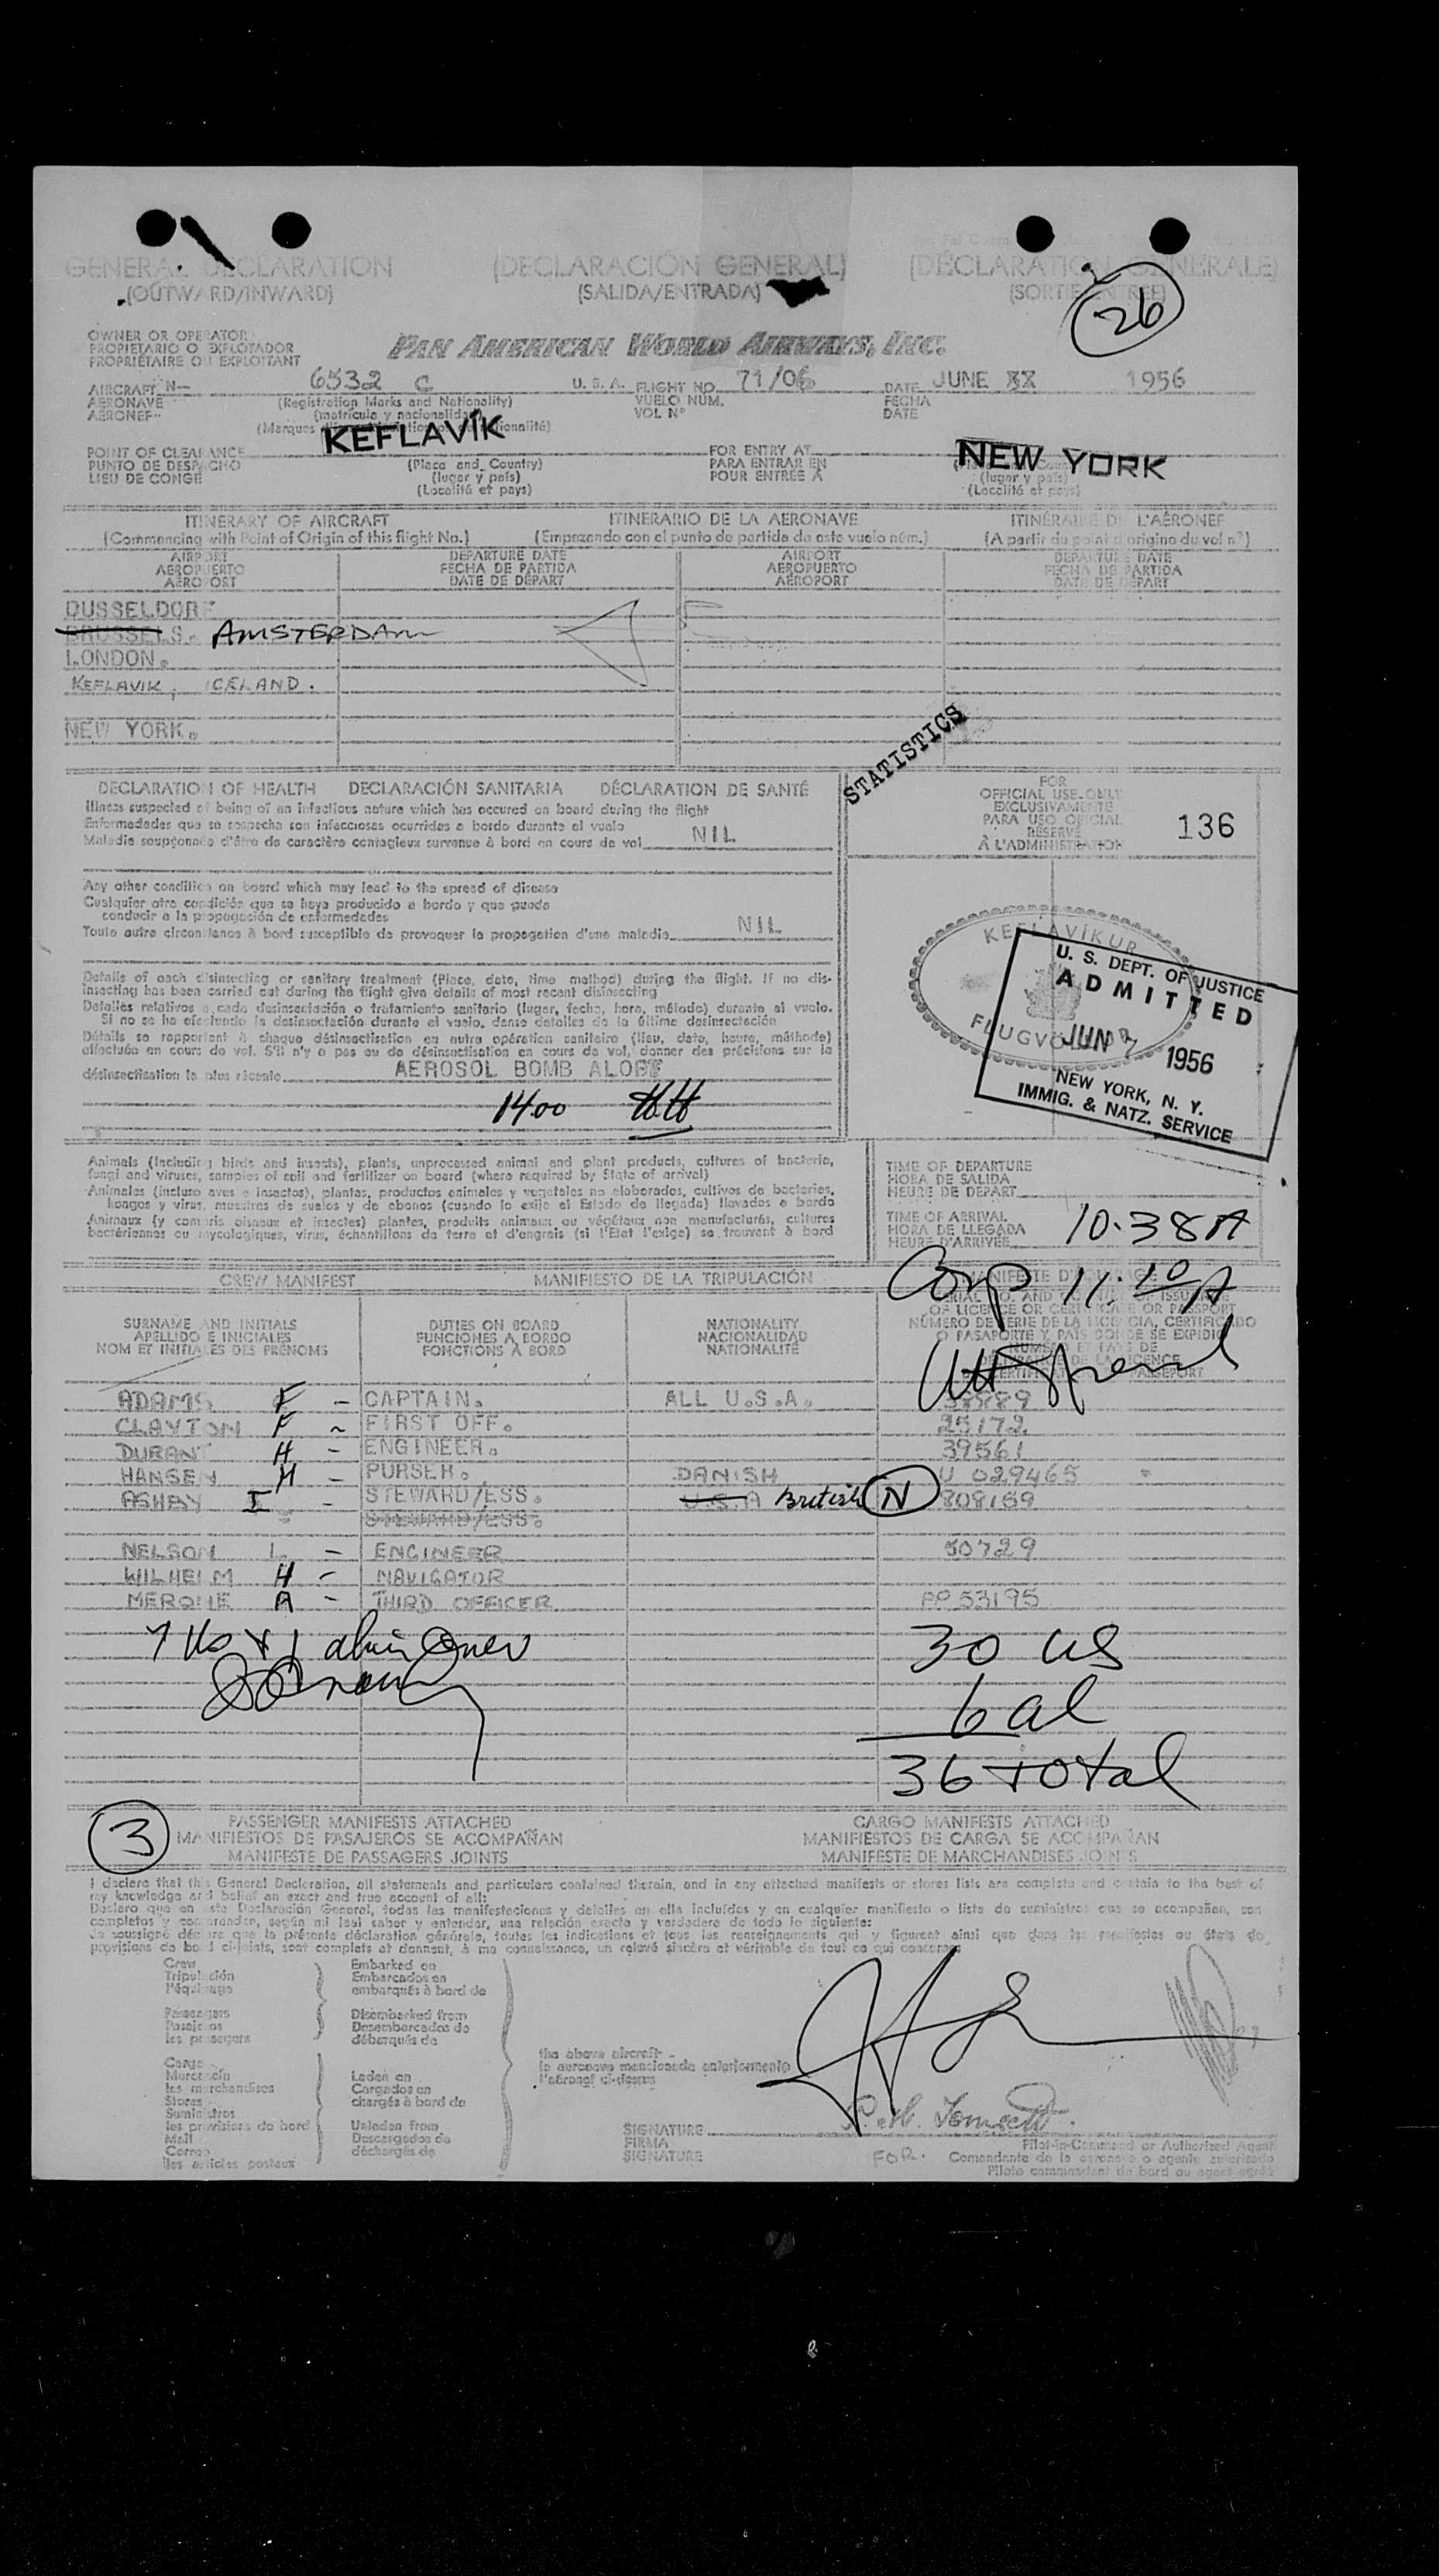 GENERAL DECLARATION (DECLARACIÓN GENERAL) (DÉCLARATION GÉNÉRALE)
(OUTWARD/INWARD) (SALIDA/ENTRADA) (SORTIE/ENTRÉE)
26
OWNER OR OPERATOR
PROPIETARIO O EXPLOTADOR
PROPRIÉTAIRE OU EXPLOITANT
PAN AMERICAN WORLD AIRWAYS, INC.
AIRCRAFT N- 6532 C U. S. A. FLIGHT NO. 71/06 DATE JUNE 1956
AERONAVE (Registration Marks and Nationality) VUELO NUM. FECHA
AÉRONEF (matrícula y nacionalidad) VOL Nº DATE
(Marques d'immatriculation et nationalité)
KEFLAVÍK
POINT OF CLEARANCE FOR ENTRY AT NEW YORK
PUNTO DE DESPACHO (Place and Country) PARA ENTRAR EN
LIEU DE CONGÉ (lugar y país) POUR ENTRÉE À (lugar y país)
(Localité et pays) (Localité et pays)
ITINERARY OF AIRCRAFT ITINERARIO DE LA AERONAVE ITINÉRAIRE DE L'AÉRONEF
(Commencing with Point of Origin of this flight No.) (Empezando con el punto de partida de este vuelo núm.) (A partir du point d'origine du vol nº)
AIRPORT DEPARTURE DATE AIRPORT DEPARTURE DATE
AEROPUERTO FECHA DE PARTIDA AEROPUERTO FECHA DE PARTIDA
AÉROPORT DATE DE DÉPART AÉROPORT DATE DE DÉPART
DUSSELDORF
BRUSSELS. AMSTERDAM
LONDON.
KEFLAVIK, ICELAND.
NEW YORK.
STATISTICS
DECLARATION OF HEALTH DECLARACIÓN SANITARIA DÉCLARATION DE SANTÉ
Illness suspected of being of an infectious nature which has occured on board during the flight
Enfermedades que se sospecha son infecciosas ocurridas a bordo durante el vuelo
Maladie soupçonnée d'être de caractère contagieux survenue à bord en cours de vol NIL
FOR
OFFICIAL USE ONLY
EXCLUSIVAMENTE
PARA USO OFICIAL
RÉSERVÉ
À L'ADMINISTRATION
136
Any other condition on board which may lead to the spread of disease
Cualquier otra condición que se haya producido a bordo y que pueda
conducir a la propagación de enfermedades
Toute autre circonstance à bord susceptible de provoquer la propagation d'une maladie NIL
KEFLAVÍKUR
U. S. DEPT. OF JUSTICE
ADMITTED
JUN 1956
NEW YORK, N. Y.
IMMIG. & NATZ. SERVICE
Details of each disinsecting or sanitary treatment (Place, date, time method) during the flight. If no dis-
insecting has been carried out during the flight give details of most recent disinsecting
Detalles relativos a cada desinsectación o tratamiento sanitario (lugar, fecha, hora, método) durante el vuelo.
Si no se ha efectuado la desinsectación durante el vuelo, danse detalles de la última desinsectación
Détails se rapportant à chaque désinsectisation ou autre opération sanitaire (lieu, date, heure, méthode)
effectuée en cours de vol. S'il n'y a pas eu de désinsectisation en cours de vol, donner des précisions sur la
désinsectisation la plus récente AEROSOL BOMB ALOFT
1400 HH
Animals (Including birds and insects), plants, unprocessed animal and plant products, cultures of bacteria,
fungi and viruses, samples of soil and fertilizer on board (where required by State of arrival)
Animales (incluso aves e insectos), plantas, productos animales y vegetales no elaborados, cultivos de bacterias,
hongos y virus, muestras de suelos y de abonos (cuando lo exija el Estado de llegada) llevados a bordo
Animaux (y compris oiseaux et insectes) plantes, produits animaux ou végétaux non manufacturés, cultures
bactériennes ou mycologiques, virus, échantillons de terre et d'engrais (si l'Etat l'exige) se trouvant à bord
TIME OF DEPARTURE
HORA DE SALIDA
HEURE DE DÉPART
TIME OF ARRIVAL
HORA DE LLEGADA 10.38A
HEURE D'ARRIVÉE
Comp 11:10A
CREW MANIFEST MANIFIESTO DE LA TRIPULACIÓN
SURNAME AND INITIALS DUTIES ON BOARD NATIONALITY
APELLIDO E INICIALES FUNCIONES A BORDO NACIONALIDAD
NOM ET INITIALES DES PRÉNOMS FONCTIONS À BORD NATIONALITÉ
OF LICENCE OR CERTIFICATE OR PASSPORT
NÚMERO DE SERIE DE LA LICENCIA, CERTIFICADO
O PASAPORTE Y PAÍS DONDE SE EXPIDIÓ
ADAMS F - CAPTAIN. ALL U.S.A. 38889
CLAYTON F - FIRST OFF. 25172
DURANT H - ENGINEER. 39561
HANSEN H - PURSER. DANISH U 029465
ASHBY I - STEWARD/ESS. U.S.A British N 808159
STEWARD/ESS.
NELSON L - ENGINEER 50729
WILHELM H - NAVIGATOR
MERONE A - THIRD OFFICER PP 53195
30 US
6 al
36 total
3
PASSENGER MANIFESTS ATTACHED CARGO MANIFESTS ATTACHED
MANIFIESTOS DE PASAJEROS SE ACOMPAÑAN MANIFIESTOS DE CARGA SE ACOMPAÑAN
MANIFESTE DE PASSAGERS JOINTS MANIFESTE DE MARCHANDISES JOINTS
I declare that this General Declaration, all statements and particulars contained therein, and in any attached manifests or stores lists are complete and certain to the best of
my knowledge and belief an exact and true account of all:
Declaro que en esta Declaración General, todas las manifestaciones y detalles en ella incluídos y en cualquier manifiesto o lista de suministros que se acompañan, son
completos y comprenden, según mi leal saber y entender, una relación exacta y verdadera de todo lo siguiente:
Je soussigné déclare que la présente déclaration générale, toutes les indications et tous les renseignements qui y figurent ainsi que dans les manifestes ou états de
provisions de bord ci-joints, sont complets et donnent, à ma connaissance, un relevé sincère et véritable de tout ce qui concerne
Crew Embarked on
Tripulación Embarcados en
l'équipage embarqués à bord de
Passengers Disembarked from
Pasajeros Desembarcados de
les passagers débarqués de
the above aircraft
la aeronave mencionada anteriormente
l'aéronef ci-dessus
Cargo
Mercancía Laden on
les marchandises Cargados en
Stores chargés à bord de
Suministros
les provisions de bord Unladen from
Mail Descargados de
Correo déchargés de
les articles postaux
SIGNATURE
FIRMA
SIGNATURE
FOR.
Pilot-in-Command or Authorized Agent
Comandante de la aeronave o agente autorizado
Pilote commandant de bord ou agent agréé